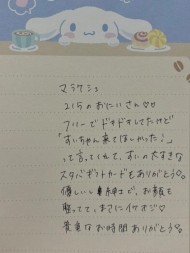 マラケシュ
215のおにいさん♡♡
フリーでドキドキしてたけど
「すいちゃん来てほしかった！」
って言ってくれて、すいの大すきな
スタバギフトカードもありがとう♡。
優しいし紳士で、お顔も
整ってて、まさにイケオジ♡
貴重なお時間ありがとう♡。